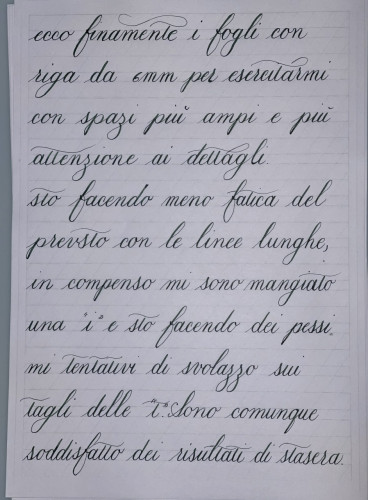 ecco finamente i fogli con
riga da 6mm per esercitarmi
con spazi più ampi e più
attenzione ai dettagli.
sto facendo meno fatica del
prevsto con le linee lunghe,
in compenso mi sono mangiato
una "i" e sto facendo dei pessi.
mi tentativi di svolazzo sui
tagli delle "t". Sono comunque
soddisfatto dei risultati di stasera.